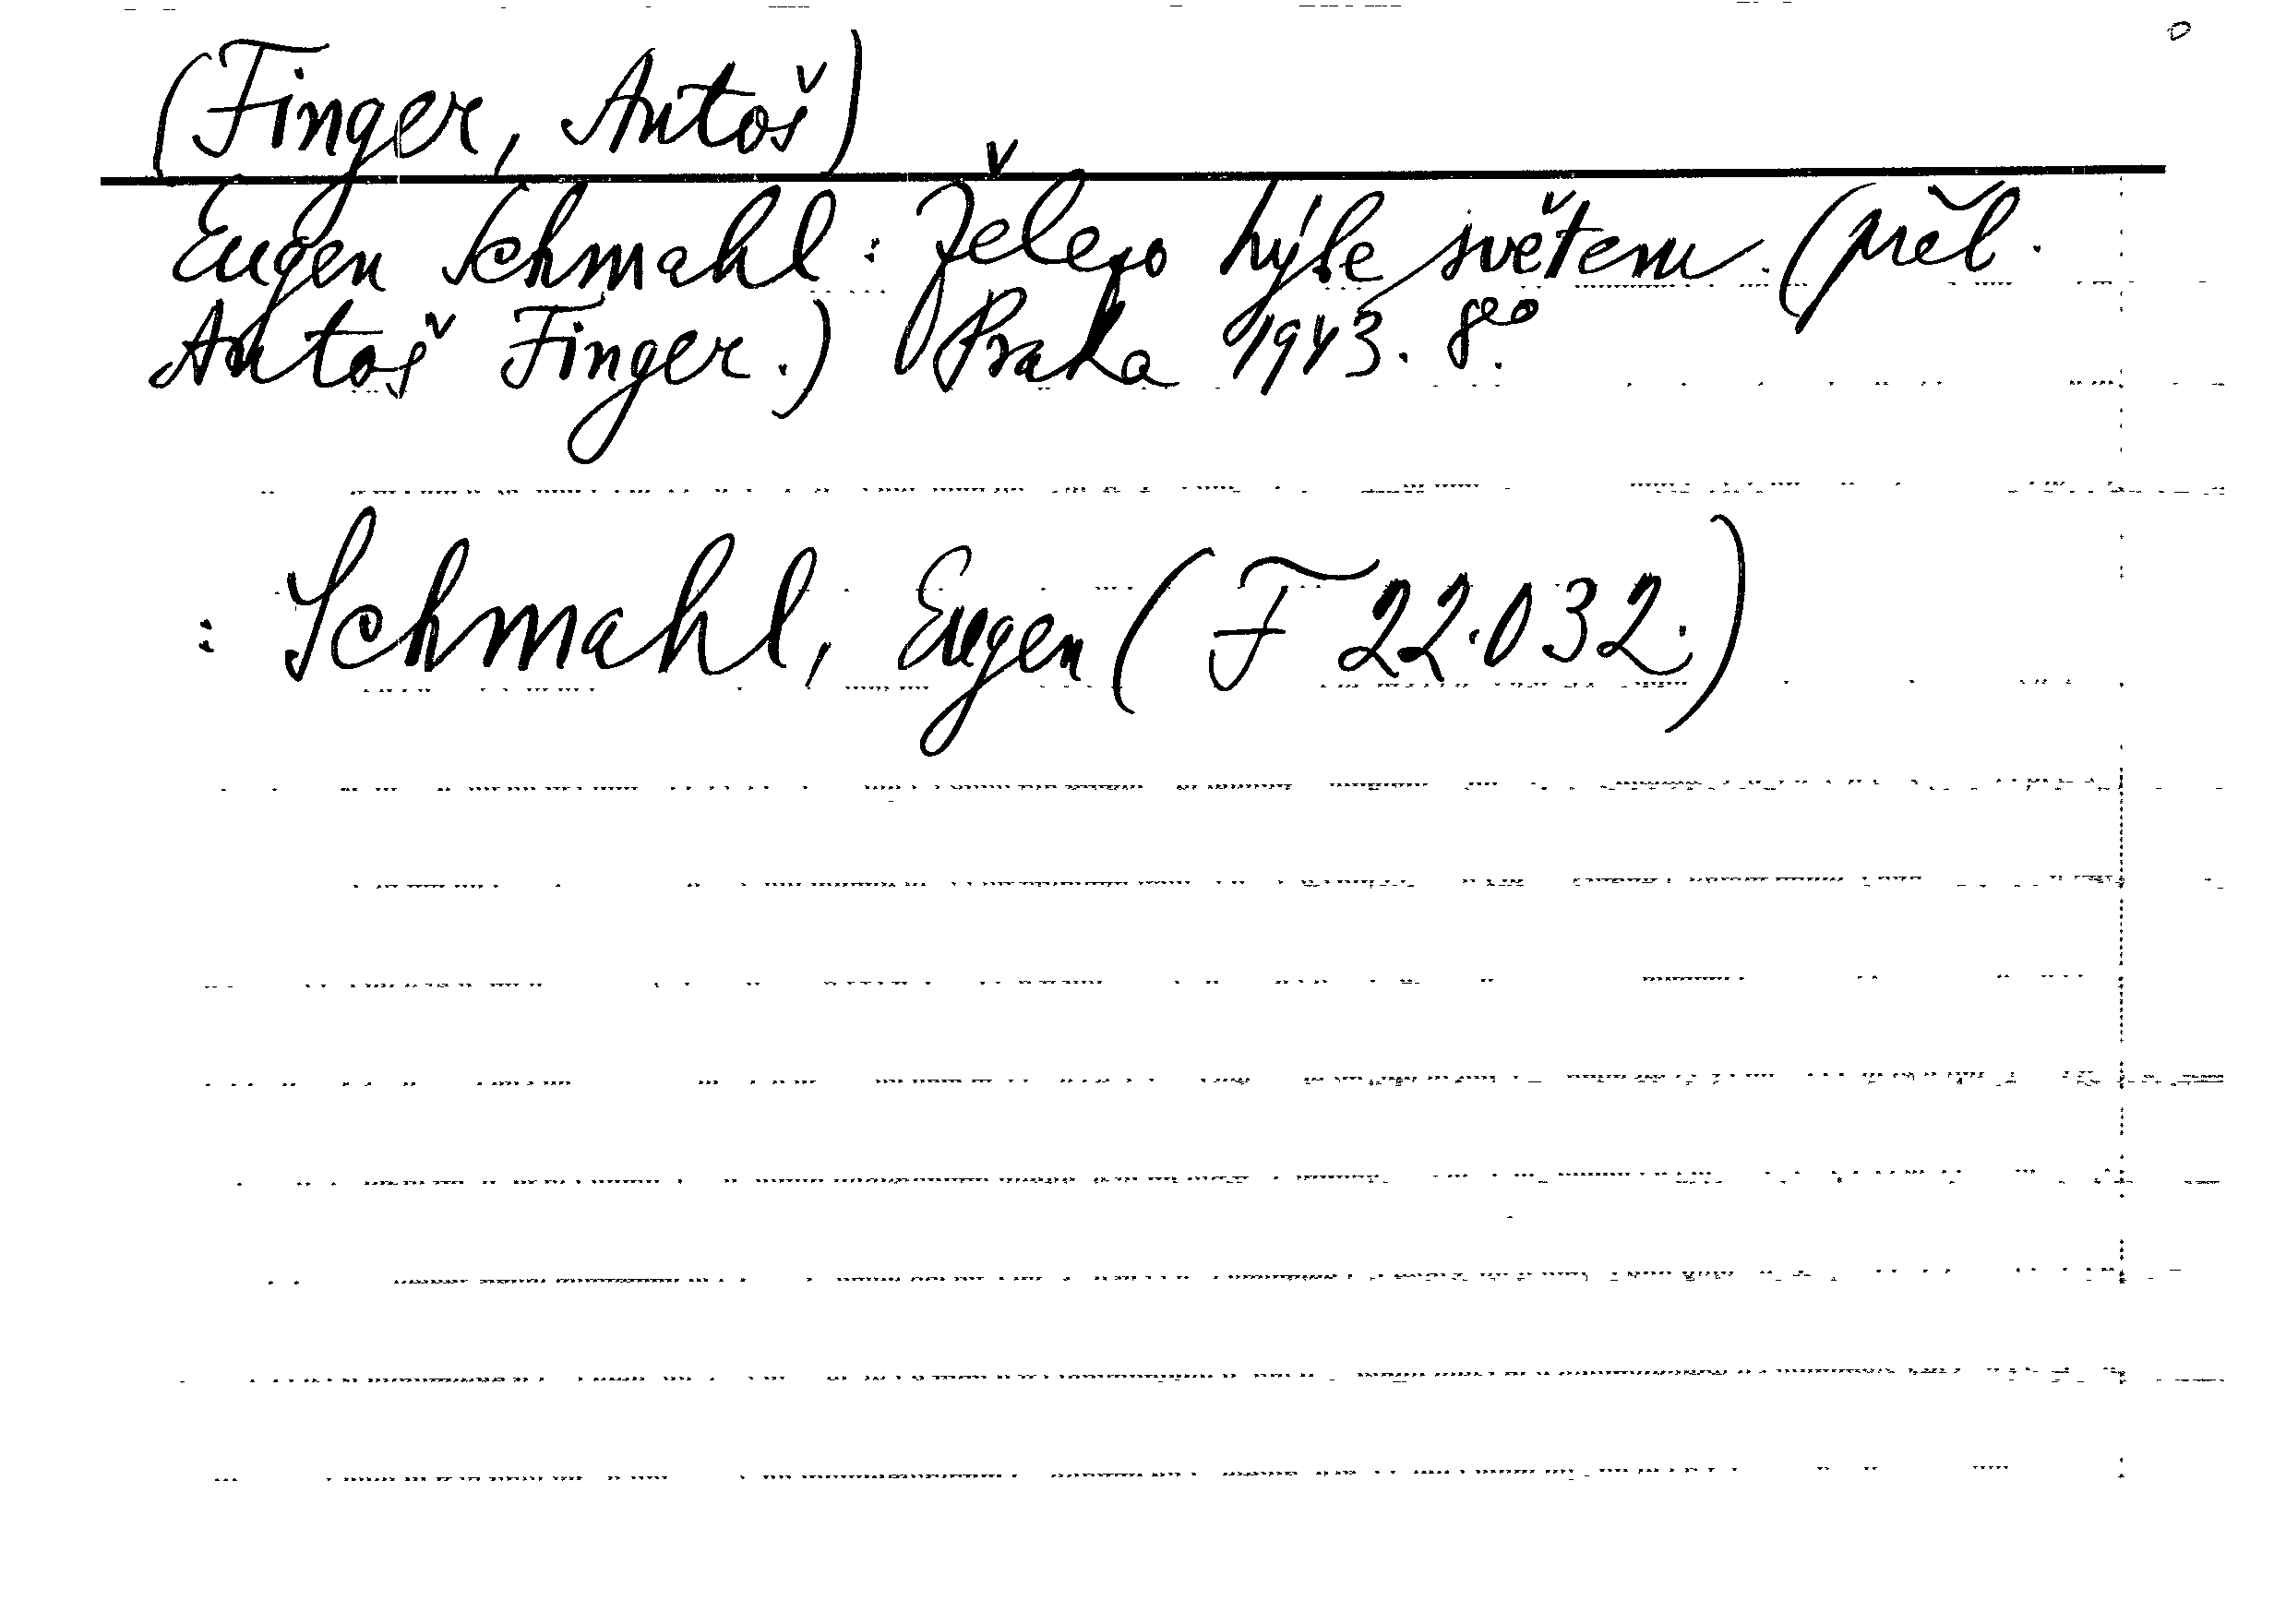 (Finger, Antoš)
Eugen Schmahl: Železo hýbe světem. (přel.
Antoš Finger.) Praha 1943. 8°°.
: Schmahl, Eugen (F 22.032.)